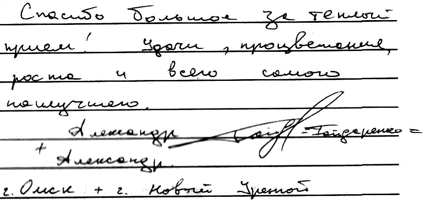 Спасибо большое за теплый
прием! Удачи, процветания,
роста и всего самого
наилучшего.
Александр -Гайдаренко=
+
Александр.
г. Омск + г. Новый Уренгой